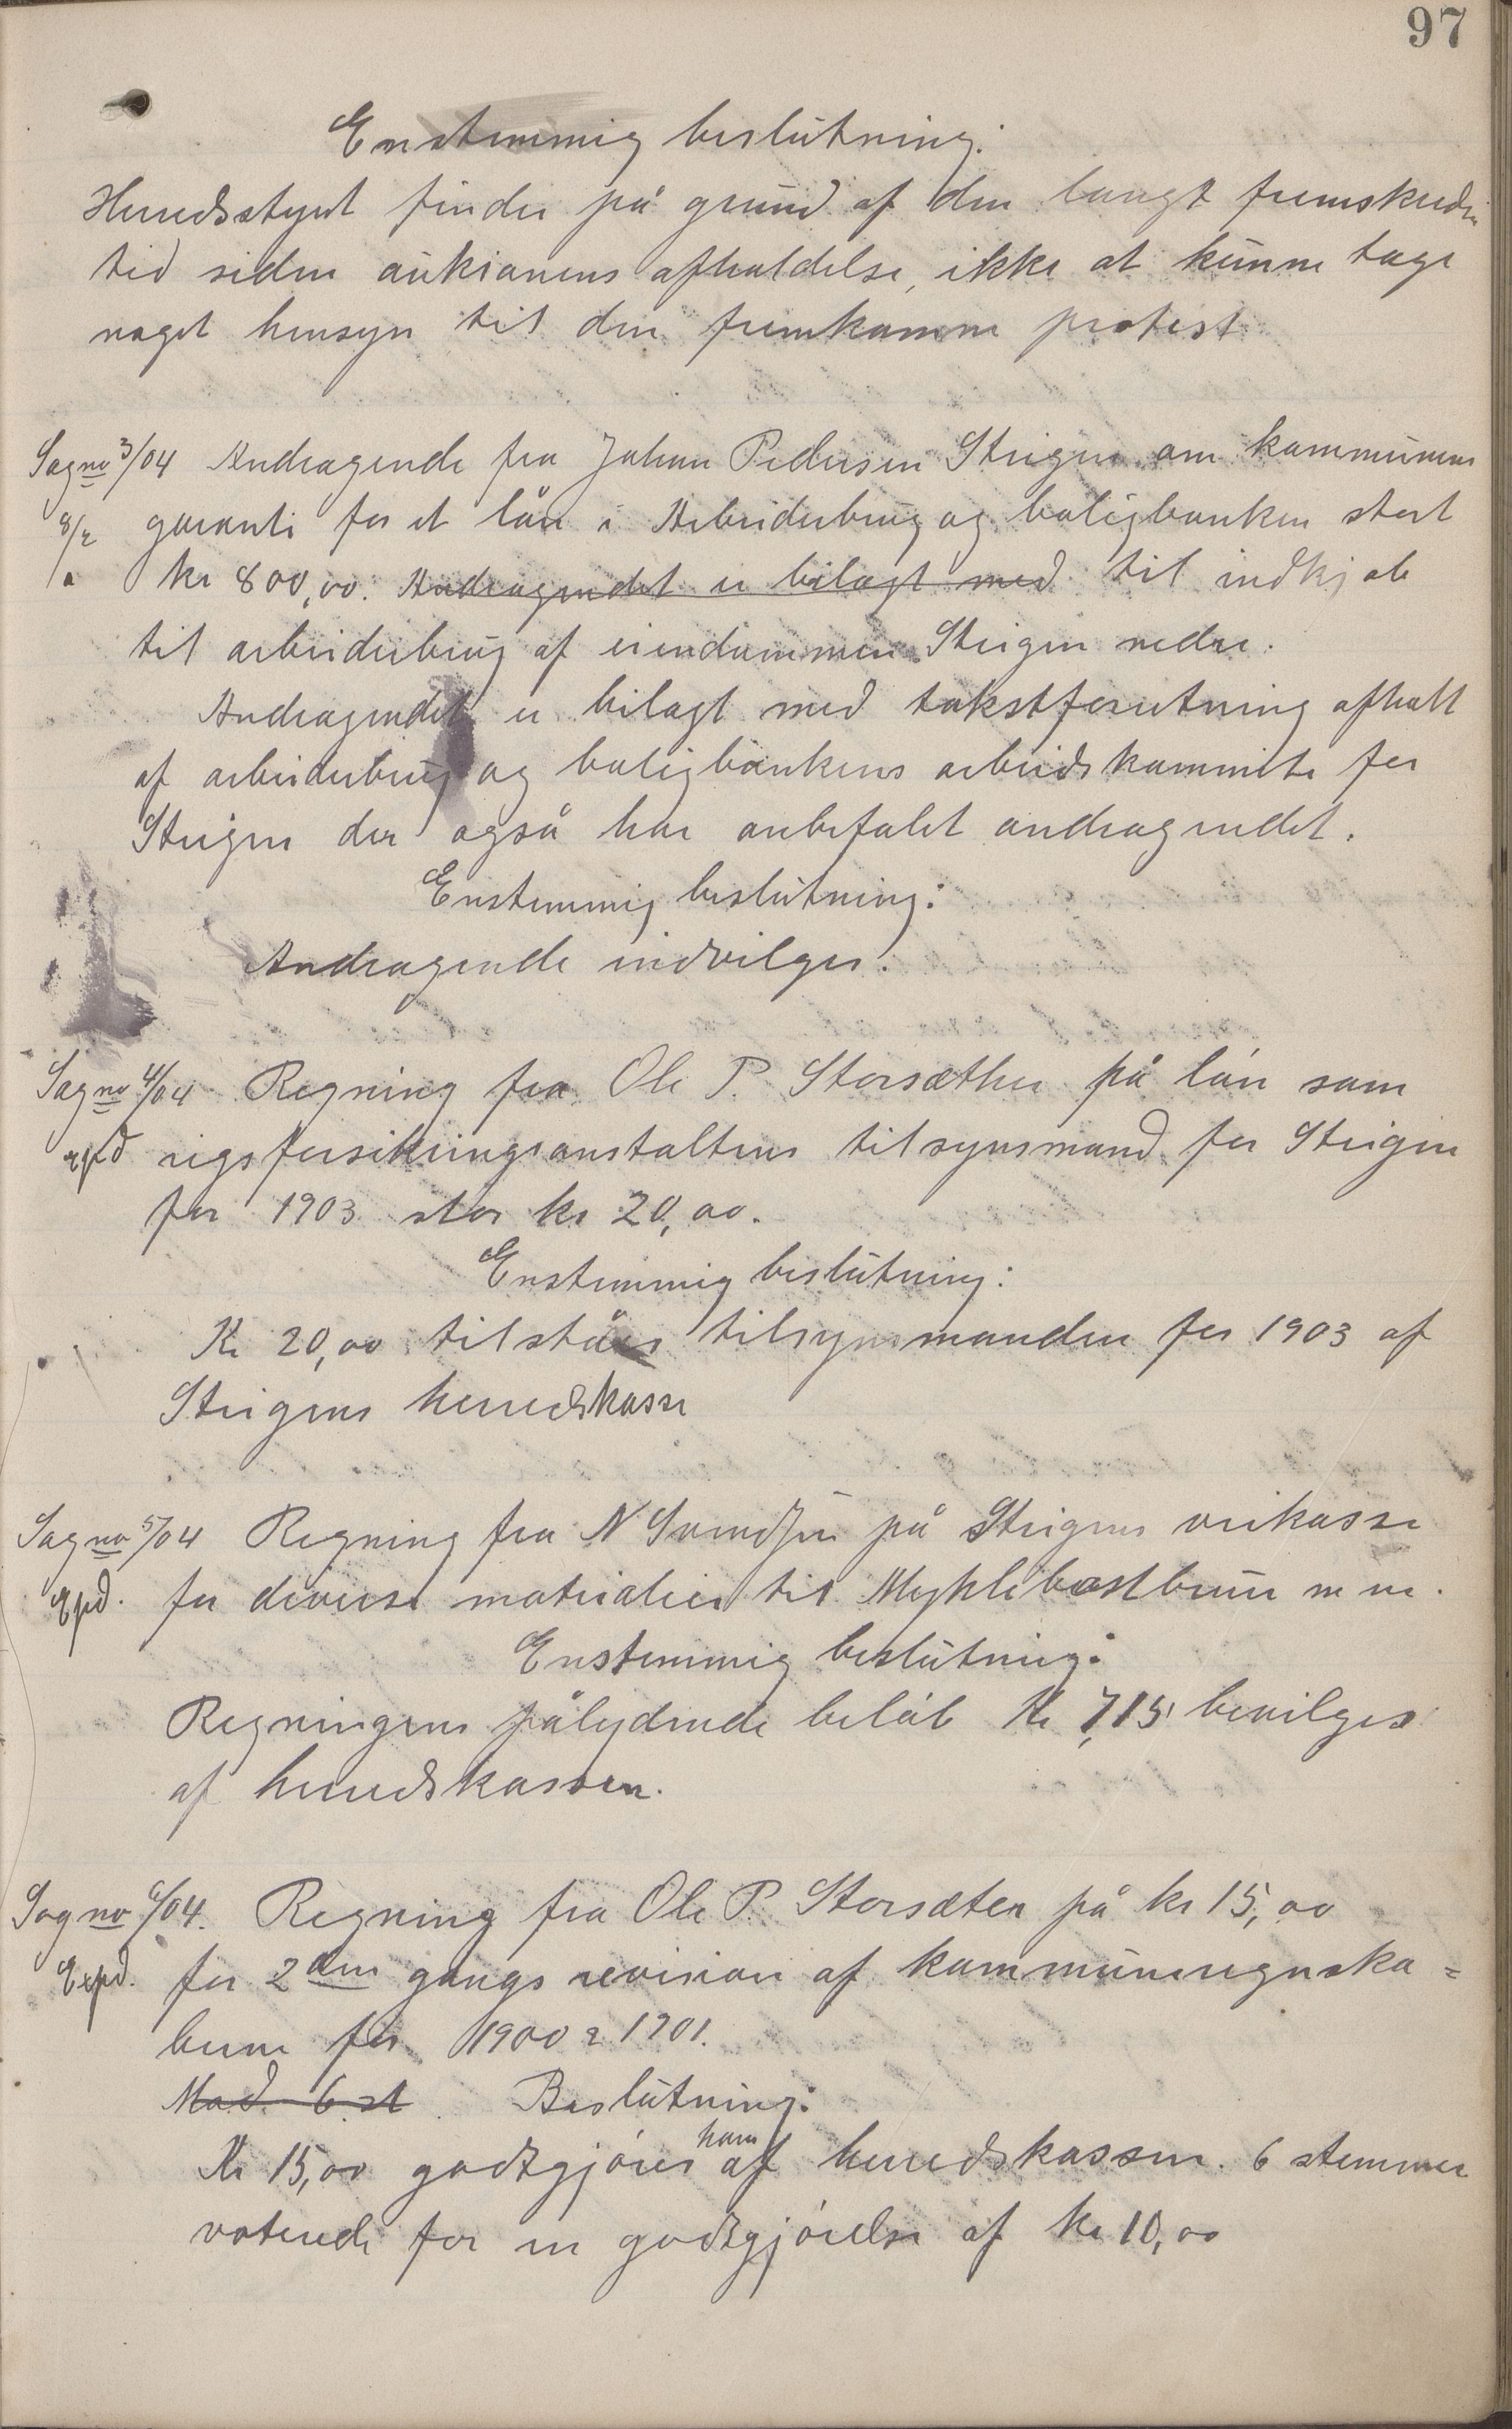 97
Enstemmig beslutning:
Herredsstyret finder på grund af den langt fremskredne
tid siden auktionens afholdelse, ikke at kunne tage
noget hensyn til den fremkomne protest
Sag no 3/04 Andragende fra Johan Pedersen Steigen om kommunens
8/2 garanti for et lån i Arbeiderbrug og boligbanken stort
kr 800,00. Andragendet er bilagt med til indkjøb
til arbeiderbrug af eiendommen Steigen nedre.
Andragendet er bilagt med takstforretning afholdt
af arbeiderbrug og boligbankens arbeidskommite for
Steigen der også har anbefalet andragendet.
Enstemmig beslutning:
Andragende indvilges.
Sag no 4/04 Regning fra Ole P. Storsæther på lön som
expd rigsforsikringsanstaltens tilsynsmand for Steigen
for 1903 stor kr 20,00.
Enstemmig beslutning:
Kr 20,00 tilståes tilsynsmanden for 1903 af
Steigens herredskasse
Sag no 5/04 Regning fra N Svendsen på Steigens veikasse
Expd. for diverse materialier til Myklebostbrua m m.
Enstemmig beslutning:
Regningens pålydende belöb Kr 7,15 bevilges
af herredskassen.
Sag no 6/04. Regning fra Ole P. Storsæter på kr 15,00
Expd. for 2den gangs revision af kommuneregnska=
berne for 1900 & 1901.
Mod 6 st Beslutning:
Kr 15,00 godtgjöres ham af herredskassen. 6 stemmer
voterede for en godtgjörelse af kr 10,00